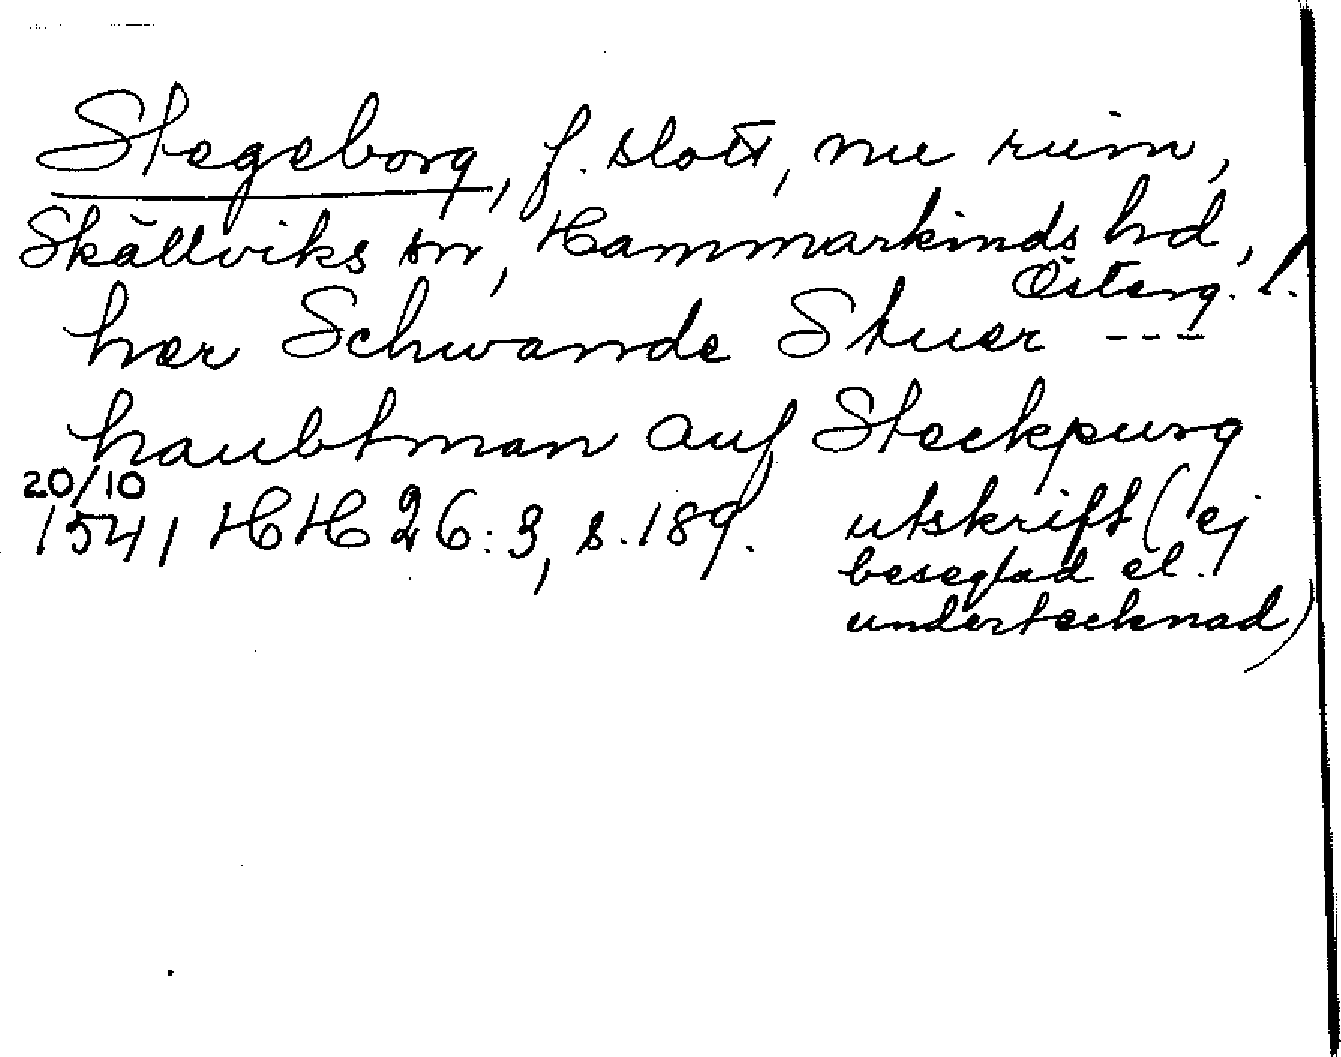 Stegeborg, f. slott, nu ruin,
Skällviks sn, Hammarkinds hd,
Österg. l.
her Schwande Stuer ---
haubtman auf Steckpurg
20/10
1541 HH 26:3, s. 189. utskrift (ej
beseglad el.
undertecknad)